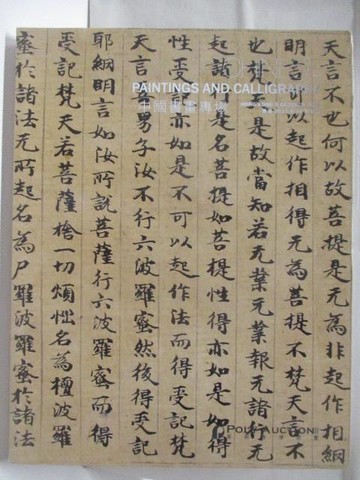 天言不也何以故菩提是无為非起作相網
明言可以起作相得无為菩提不梵天言不
也梵天是故當知若无業无業報无諸行无
起諸行是名菩提如菩提性得亦如是如得
性受記亦如是不可以起作法而得受記梵
天言善男子汝不行六波羅蜜然後得受記
耶網明言如汝所說菩薩行六波羅蜜而得
受記梵天若菩薩捨一切煩惱名為檀波羅
蜜於諸法无所起名為尸羅波羅蜜於諸法
PAINTINGS AND CALLIGRAPHY
中國書畫專場
POLY AUCTION